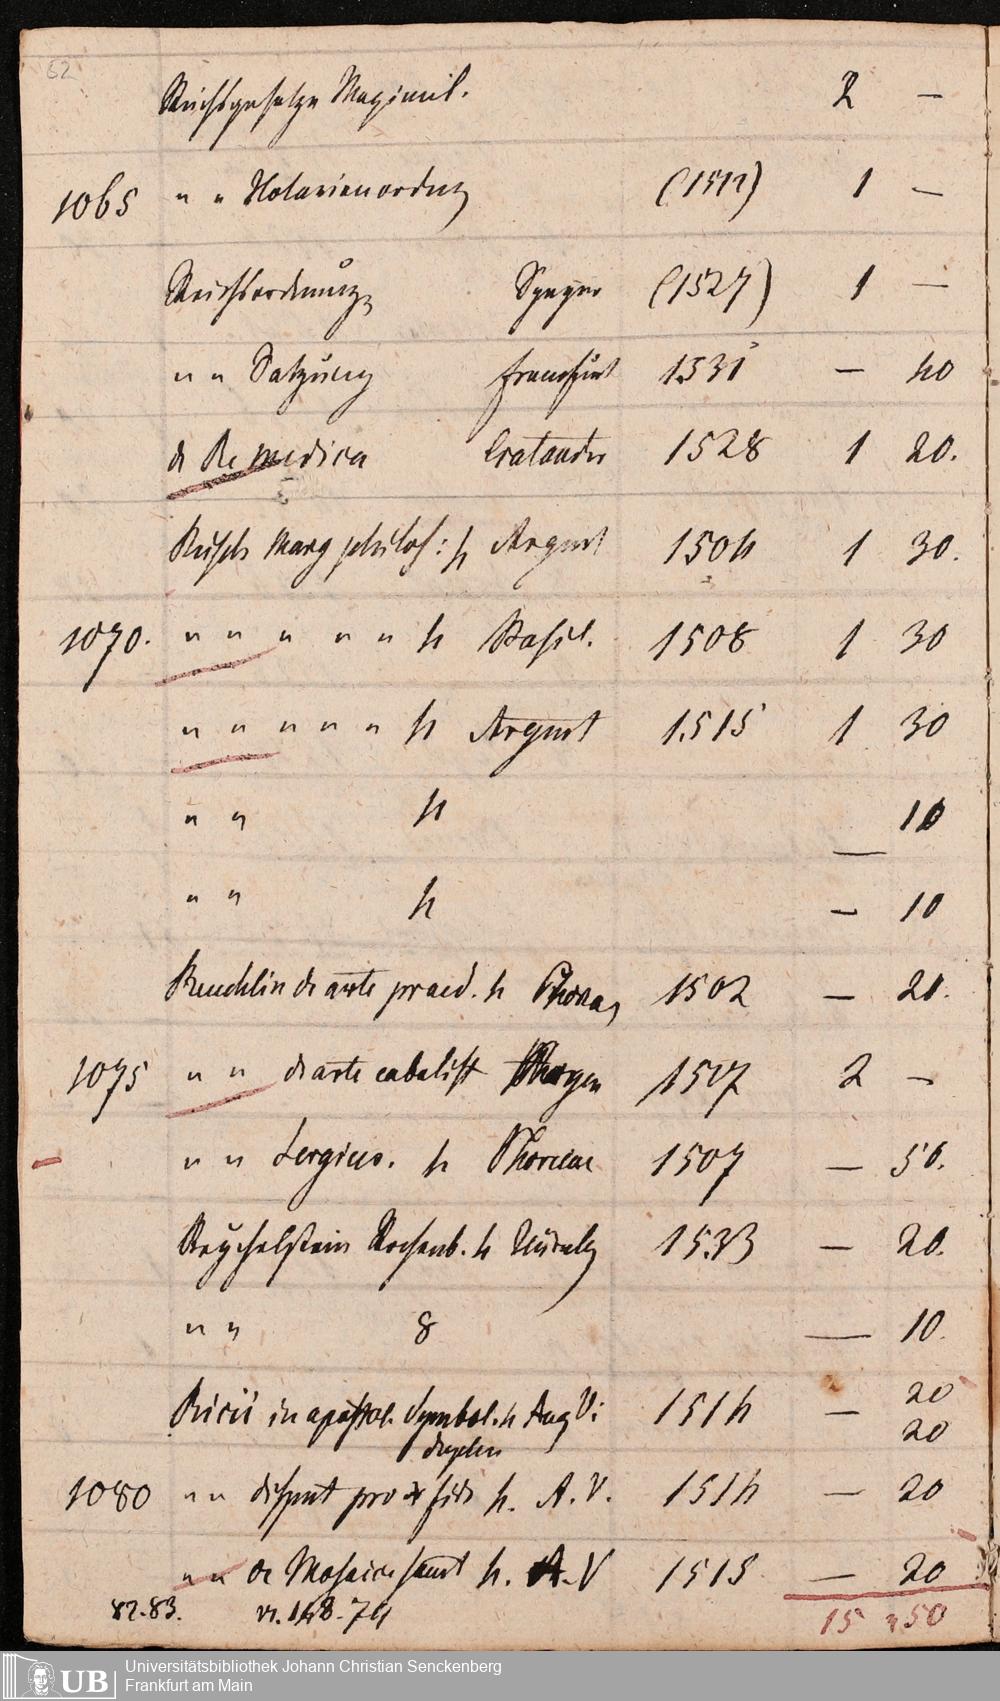 62
Reichsgesetze Maximil. 2 —
1065 " " Notarienordng (1512) 1 —
Reichsordnung Speyer (1527) 1 —
" " Satzung Frankfurt 1531 — 40
de Re medica Cratander 1528 1 20.
Reisch Marg philos: 4 Argent 1504 1 30.
1070. " " " " " 4 Basil. 1508 1 30
" " " " " 4 Argent 1515 1 30
" " 4 — 10
" " 4 — 10
Reuchlin de arte praed. 4 Phorca 1502 — 20.
1075 " " de arte cabalist 1517 2 —
" " Sergius. 4 Phorcae 1507 — 50.
Reychelstein Kochenb. 4 Nürnbg 1533 — 20.
" " 8 — 10.
Ricii in apostol. Symbol. 4 Aug Vi: 1514 — 20
duplex 20
1080 " " disput pro fide 4. A. V. 1514 — 20
" " de Mosaice sanct 4. A. V 1515 — 20
82.83. v. 148. 74 15 " 50
UB Universitätsbibliothek Johann Christian Senckenberg
Frankfurt am Main